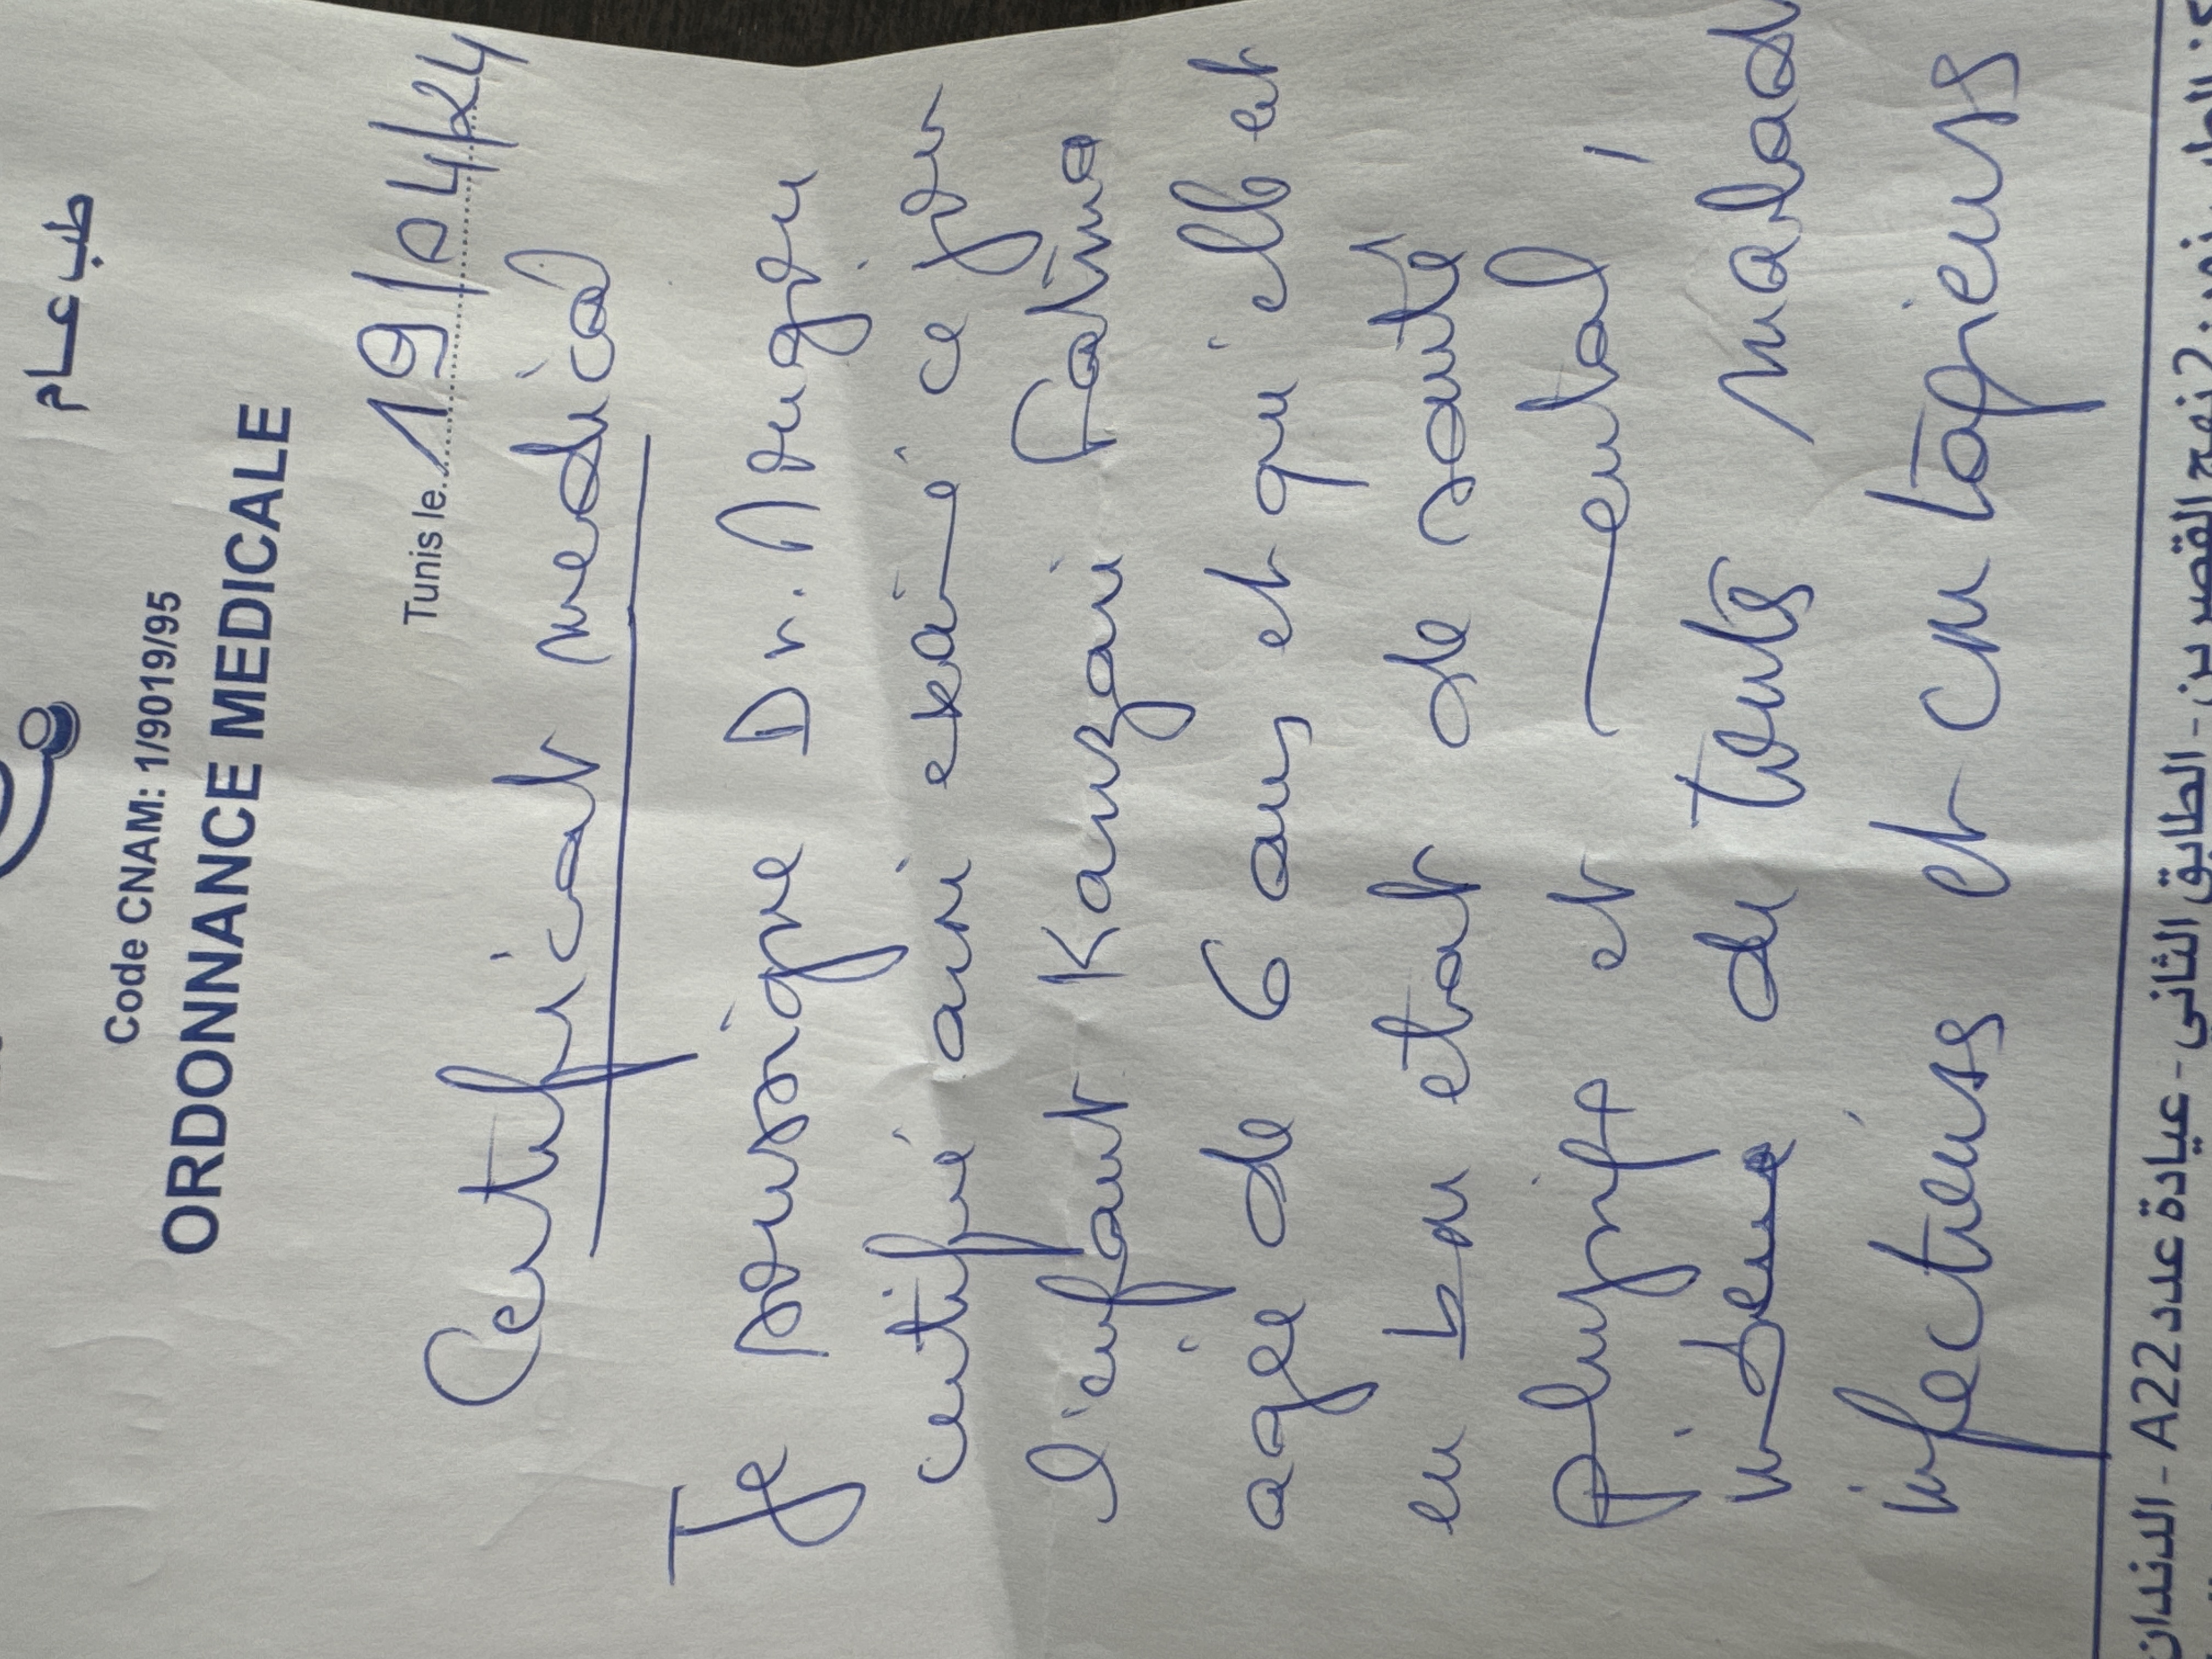 طب عام
Code CNAM: 1/9019/95
ORDONNANCE MEDICALE
Tunis le 19/04/24
Certificat medical
Je soussigné Dr.
certifié avoir examiné ce jour
l'enfant Kanzari Fatima
agée de 6 ans et qu'elle est
en bon etat de santé
physique et mental
indemne de toutes malad
infectieuses et contagieuses
الدندان - A22 عيادة عدد - الطابق الثاني - نهج القصرين 2